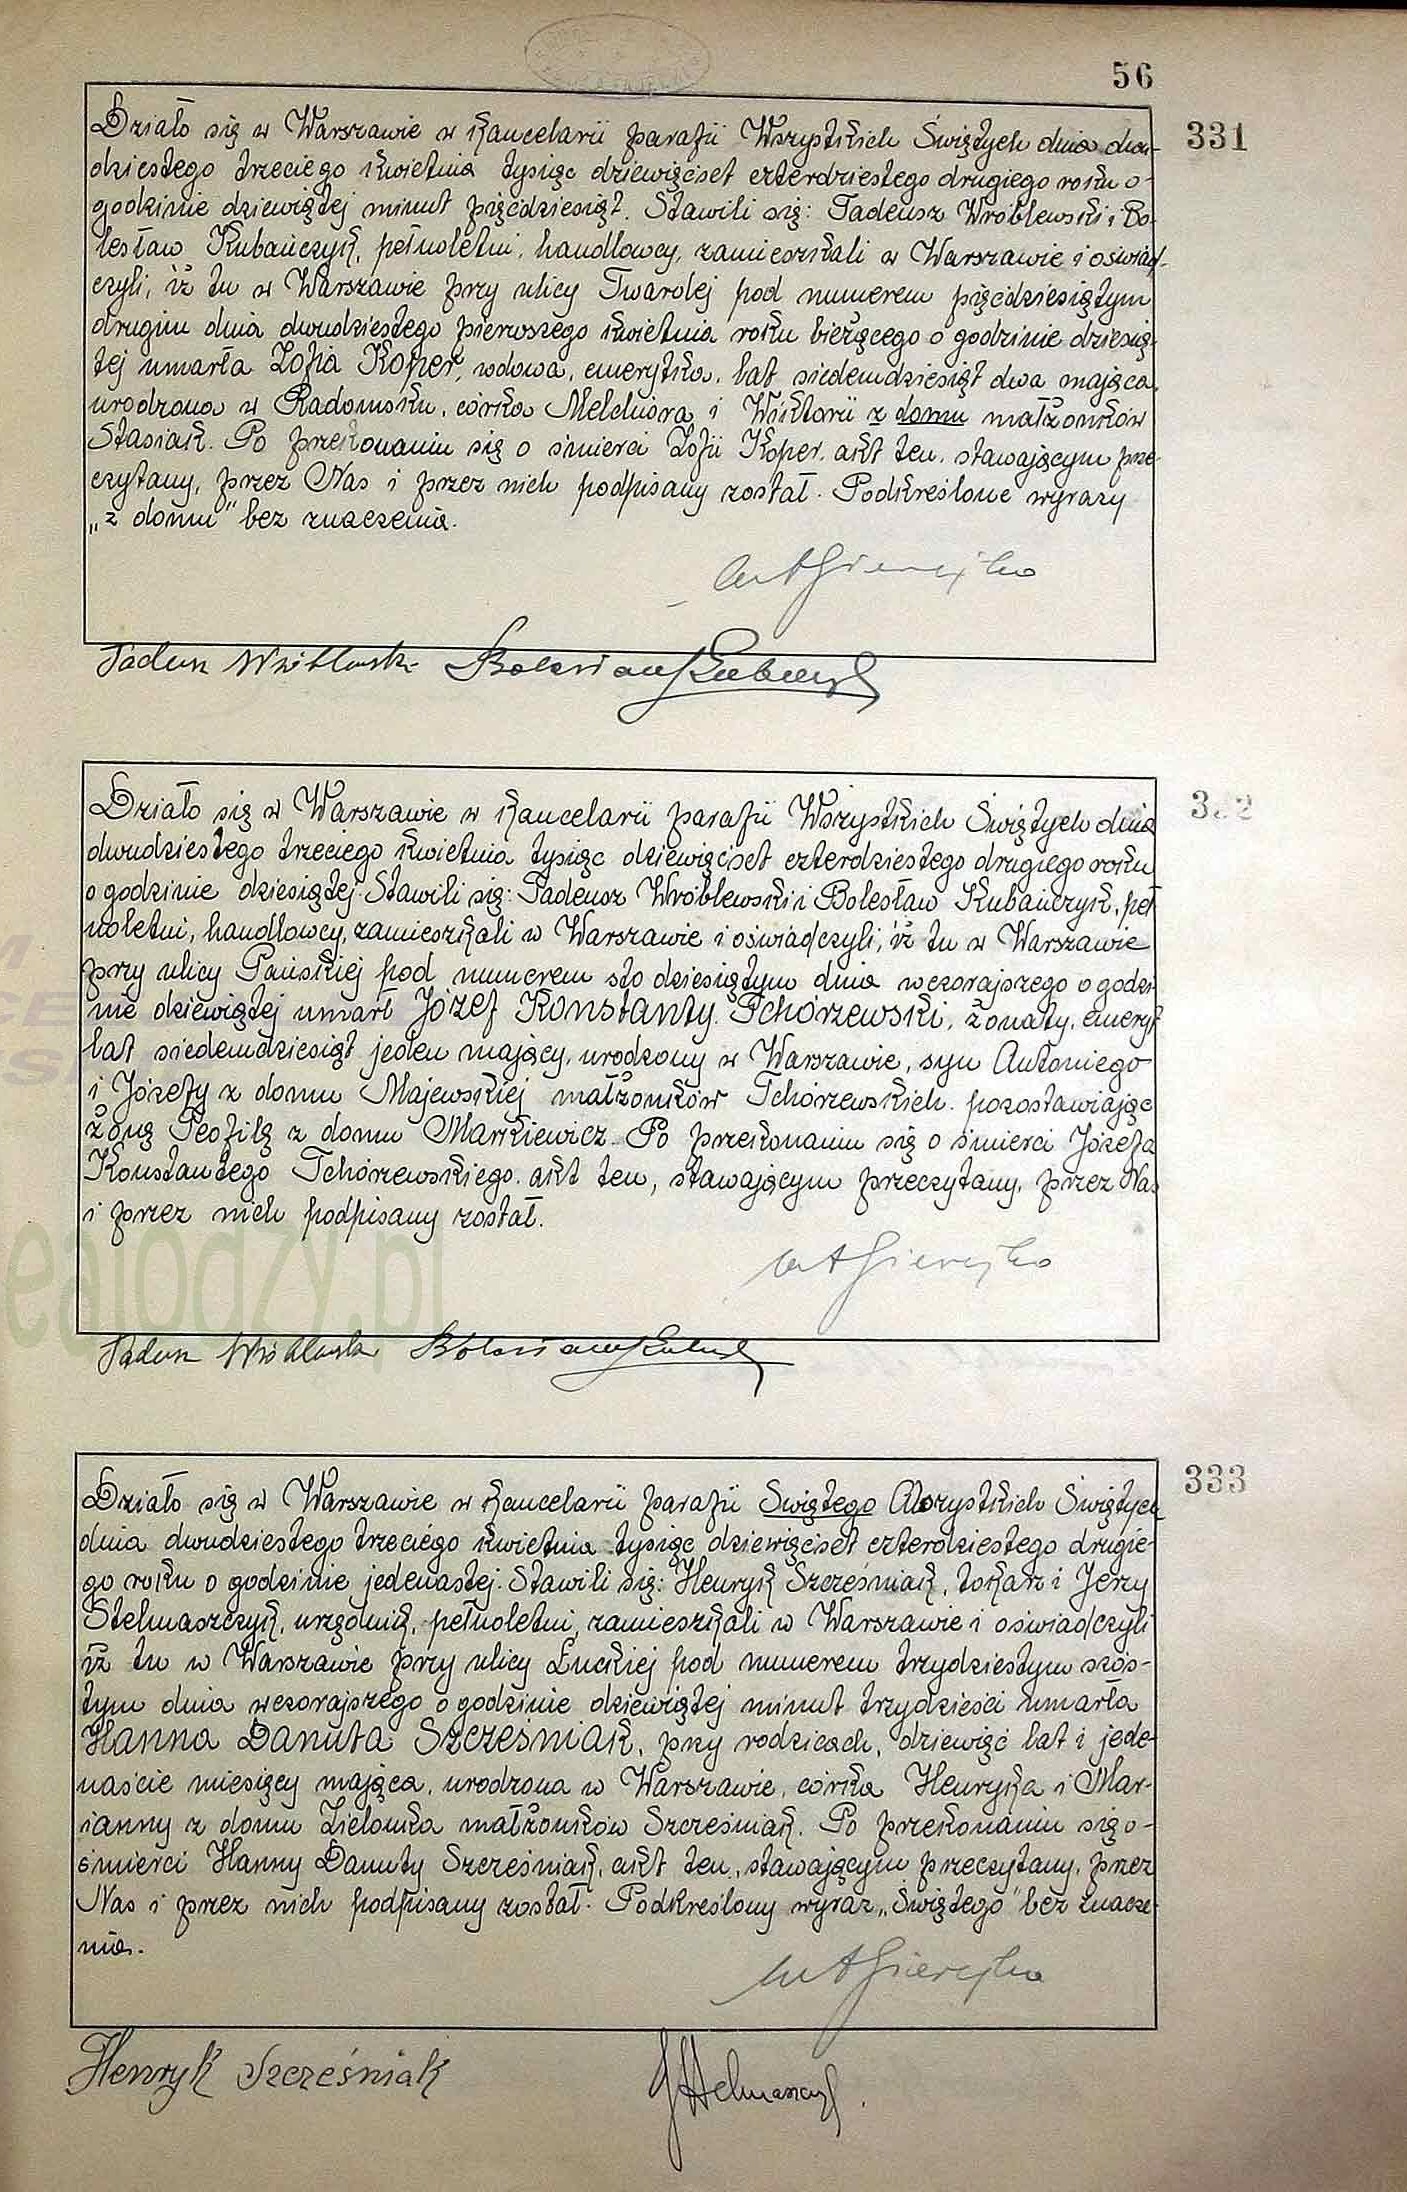 56
331
Działo się w Warszawie w kancelarii parafii Wszystkich Świętych dnia dwu-
dziestego trzeciego kwietnia tysiąc dziewięćset czterdziestego drugiego roku o
godzinie dziewiątej minut pięćdziesiąt. Stawili się: Tadeusz Wróblewski i Bo-
lesław Kubańczyk, pełnoletni, handlowcy, zamieszkali w Warszawie i oświad-
czyli, iż tu w Warszawie przy ulicy Twardej pod numerem pięćdziesiątym
drugim dnia dwudziestego pierwszego kwietnia roku bieżącego o godzinie dziesią-
tej umarła Zofia Koper, wdowa, emerytka, lat siedemdziesiąt dwa mająca,
urodzona w Radomsku, córka Melchiora i Wiktorii z domu małżonków
Stasiak. Po przekonaniu się o śmierci Zofii Koper, akt ten, stawającym prze-
czytany, przez Nas i przez nich podpisany został. Podkreślone wyrazy
„z domu” bez znaczenia.
Tadeusz Wróblewski Bolesław Kubańczyk
332
Działo się w Warszawie w kancelarii parafii Wszystkich Świętych dnia
dwudziestego trzeciego kwietnia tysiąc dziewięćset czterdziestego drugiego roku
o godzinie dziesiątej. Stawili się: Tadeusz Wróblewski i Bolesław Kubańczyk, peł
noletni, handlowcy, zamieszkali w Warszawie i oświadczyli, iż tu w Warszawie
przy ulicy Pańskiej pod numerem sto dziesiątym dnia wczorajszego o godzi-
nie dziewiątej umarł Józef Konstanty Tchórzewski, żonaty, emeryt
lat siedemdziesiąt jeden mający, urodzony w Warszawie, syn Antoniego
i Józefy z domu Majewskiej małżonków Tchórzewskich, pozostawiając
żonę Teofilę z domu Markiewicz. Po przekonaniu się o śmierci Józefa
Konstantego Tchórzewskiego, akt ten, stawającym przeczytany, przez Nas
i przez nich podpisany został.
ealodzy.pl
Tadeusz Wróblewski Bolesław Kubańczyk
333
Działo się w Warszawie w kancelarii parafii Świętego Wszystkich Świętych
dnia dwudziestego trzeciego kwietnia tysiąc dziewięćset czterdziestego drugie-
go roku o godzinie jedenastej. Stawili się: Henryk Szcześniak, tokarz i Jerzy
Stelmaszczyk, urzędnik, pełnoletni, zamieszkali w Warszawie i oświadczyli
iż tu w Warszawie przy ulicy Łuckiej pod numerem trzydziestym szós-
tym dnia wczorajszego o godzinie dziewiątej minut trzydzieści umarła
Hanna Danuta Szcześniak, przy rodzicach, dziewięć lat i jede-
naście miesięcy mająca, urodzona w Warszawie, córka Henryka i Mar-
ianny z domu Zielonka małżonków Szcześniak. Po przekonaniu się o-
śmierci Hanny Danuty Szcześniak, akt ten, stawającym przeczytany, przez
Nas i przez nich podpisany został. Podkreślony wyraz „Świętego” bez znacze-
nia.
Henryk Szcześniak JStelmaszczyk